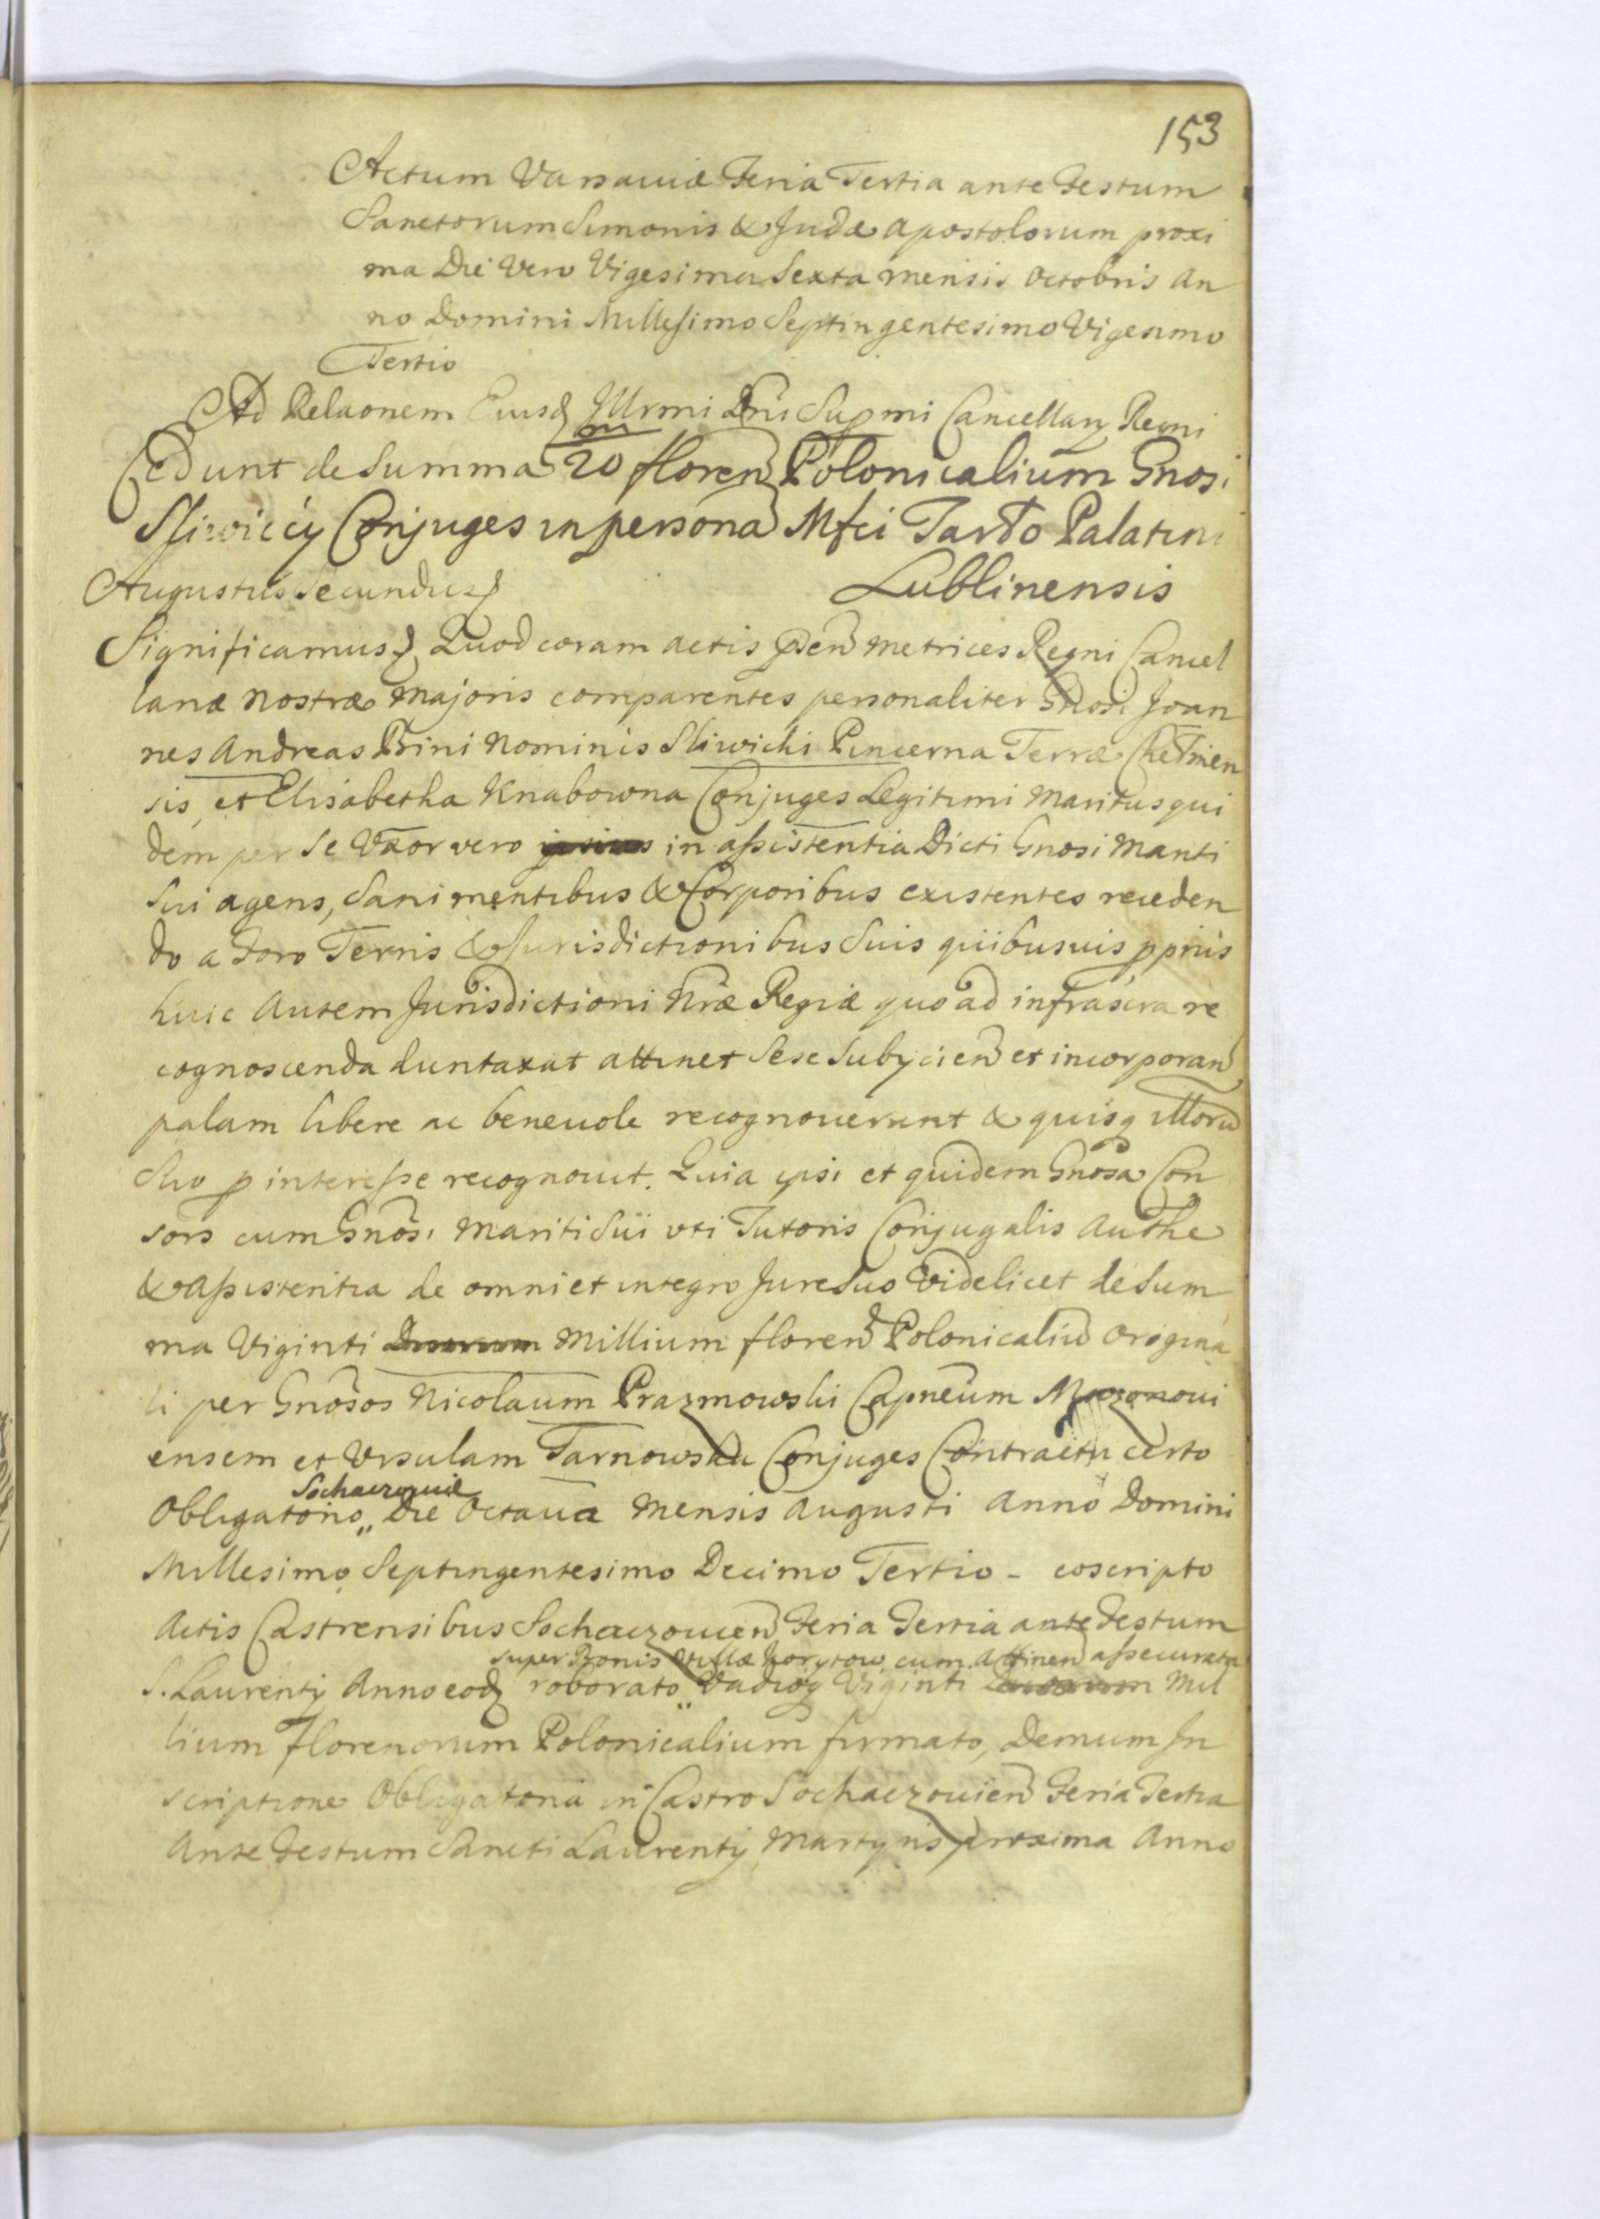 153
Actum Varsaviæ Feria Tertia ante Festum
Sanctorum Simonis & Judæ Apostolorum proxi
ma Die Vero Vigesima Sexta mensis Octobris An
no Domini Millesimo Septingentesimo Vigesimo
Tertio
Ad Relaonem Eiusd Illrmi Dni Supmi Cancellarij Regni
Cedunt de Summa 20 m floren Polonicalium Gnosi
Sliwiccy Conjuges in persona Mfci Tarło Palatini
Lublinensis
Augustus Secundus
Significamus Quod coram actis pñ metrices Regni Cancel
lariæ nostræ Majoris comparentes personaliter Gnosi Joan
nes Andreas Bini Nominis Sliwicki Pincerna Terræ Chełmen
sis, et Elisabetha Knabowna Conjuges Legitimi Maritus qui
dem per se Uxor vero in assistentia Dicti Gnosi Mariti
sui agens, sani mentibus & Corporibus existentes receden
do a Foro Terris & Jurisdictionibus suis quibusuis pprijs
huic Autem Jurisdictioni Nræ Regiæ quo ad infrascra re
cognoscenda duntaxat attinet sese subycien et incorporan
palam libere ac beneuole recognouerunt & quisq illoru
suo p interesse recognouit. Quia ipsi et quidem Gnosa Con
sors cum Gnosi Mariti Sui uti Tutoris Conjugalis Authe
& assistentia de omni et integro Jure suo Videlicet de Sum
ma Viginti Duorum Millium floren Polonicaliu origina
li per Gnosos Nicolaum Prazmowski Capneum Mozonoui
ensem et Ursulam Tarnowska Conjuges Contractu certo
Sochaczouiæ
Obligatorio,, Die Octaua Mensis Augusti Anno Domini
Millesimo Septingentesimo Decimo Tertio - coscripto
Actis Castrensibus Sochaczouien Feria Tertia ante Festum
super Bonis Villæ Korytow cum Attinen assecurata
S. Laurentij Anno eod roborato,, Vadioq Viginti Duorum Mil
lium florenorum Polonicalium firmato, Demum In
scriptione Obligatoria in Castro Sochaczouien Feria Tertia
Ante Festum Sancti Laurentij Martyris proxima Anno